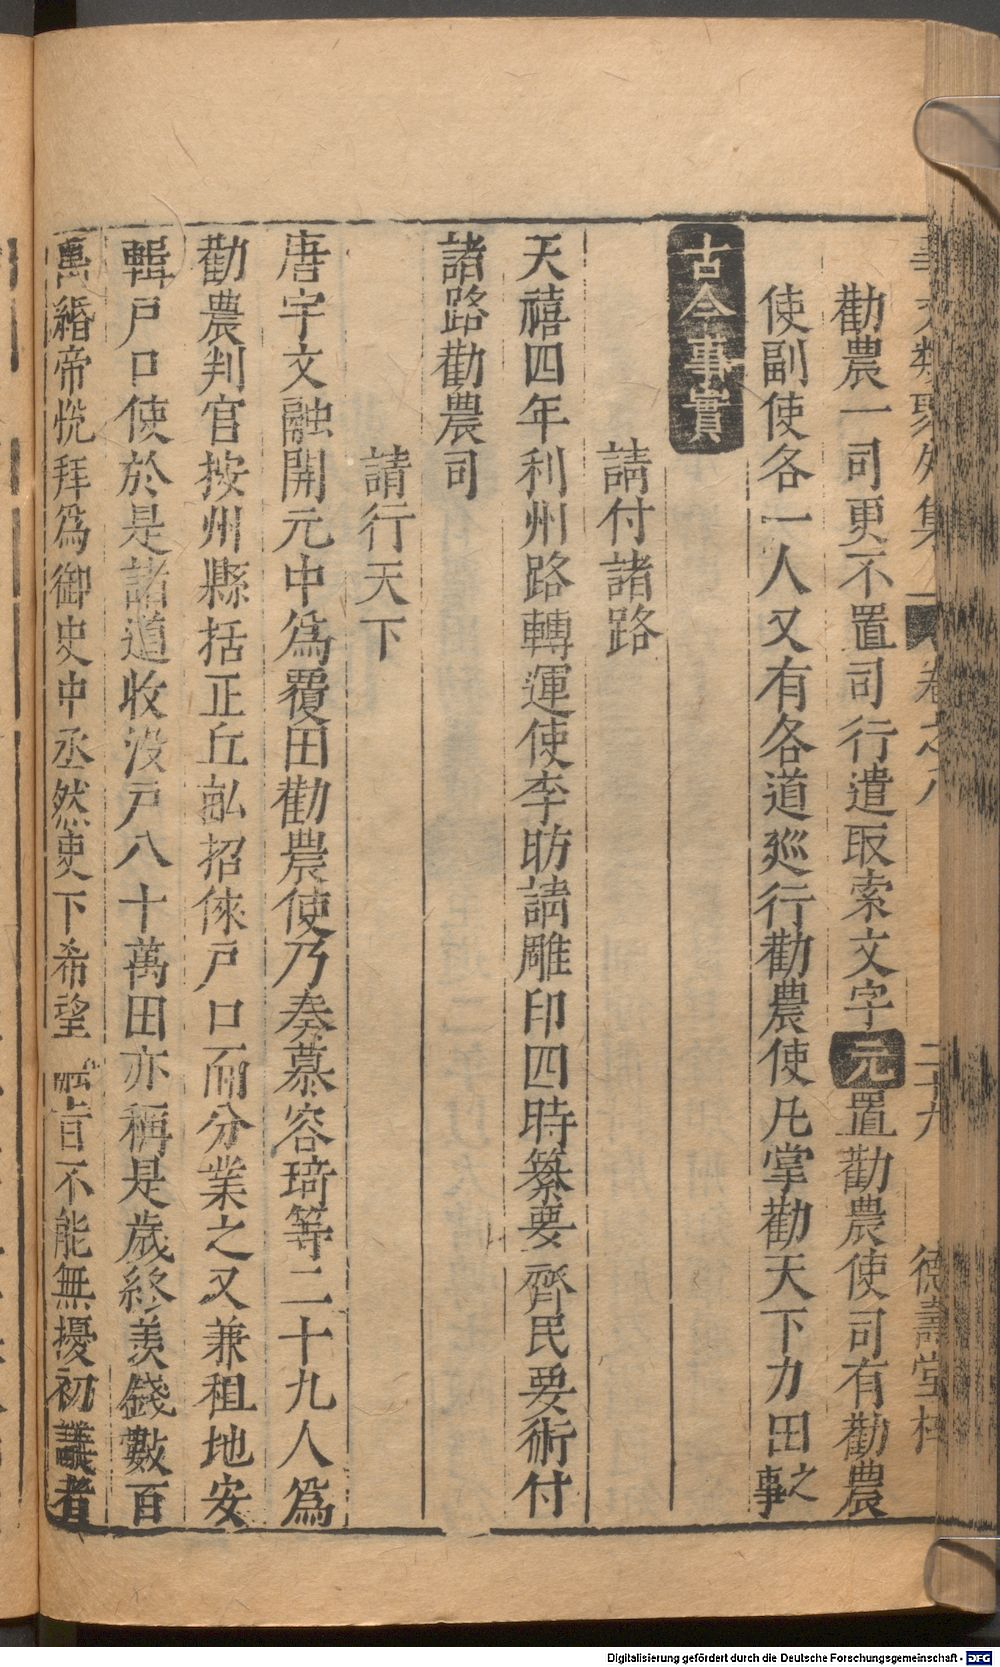 勸農一司更不置司行遣取索文字元置勸農使司有勸農
使副使各一人又有各道廵行勸農使凡掌勸天下力田之事
古今事實
請付諸路
天禧四年利州路轉運使李昉請雕印四時纂要齊民要術付
諸路勸農司
請行天下
唐宇文融開元中爲覆田勸農使乃奏慕容琦等二十九人爲
勸農判官按州縣括正丘畝招徠戸口而分業之又兼租地安
輯戸口使於是諸道收沒戸八十萬田亦稱是歲終羨錢數百
萬緡帝恱拜爲御史中丞然吏下希望融旨不能無擾初議者
卷之八
二十九
德壽堂梓
Digitalisierung gefördert durch die Deutsche Forschungsgemeinschaft - DFG